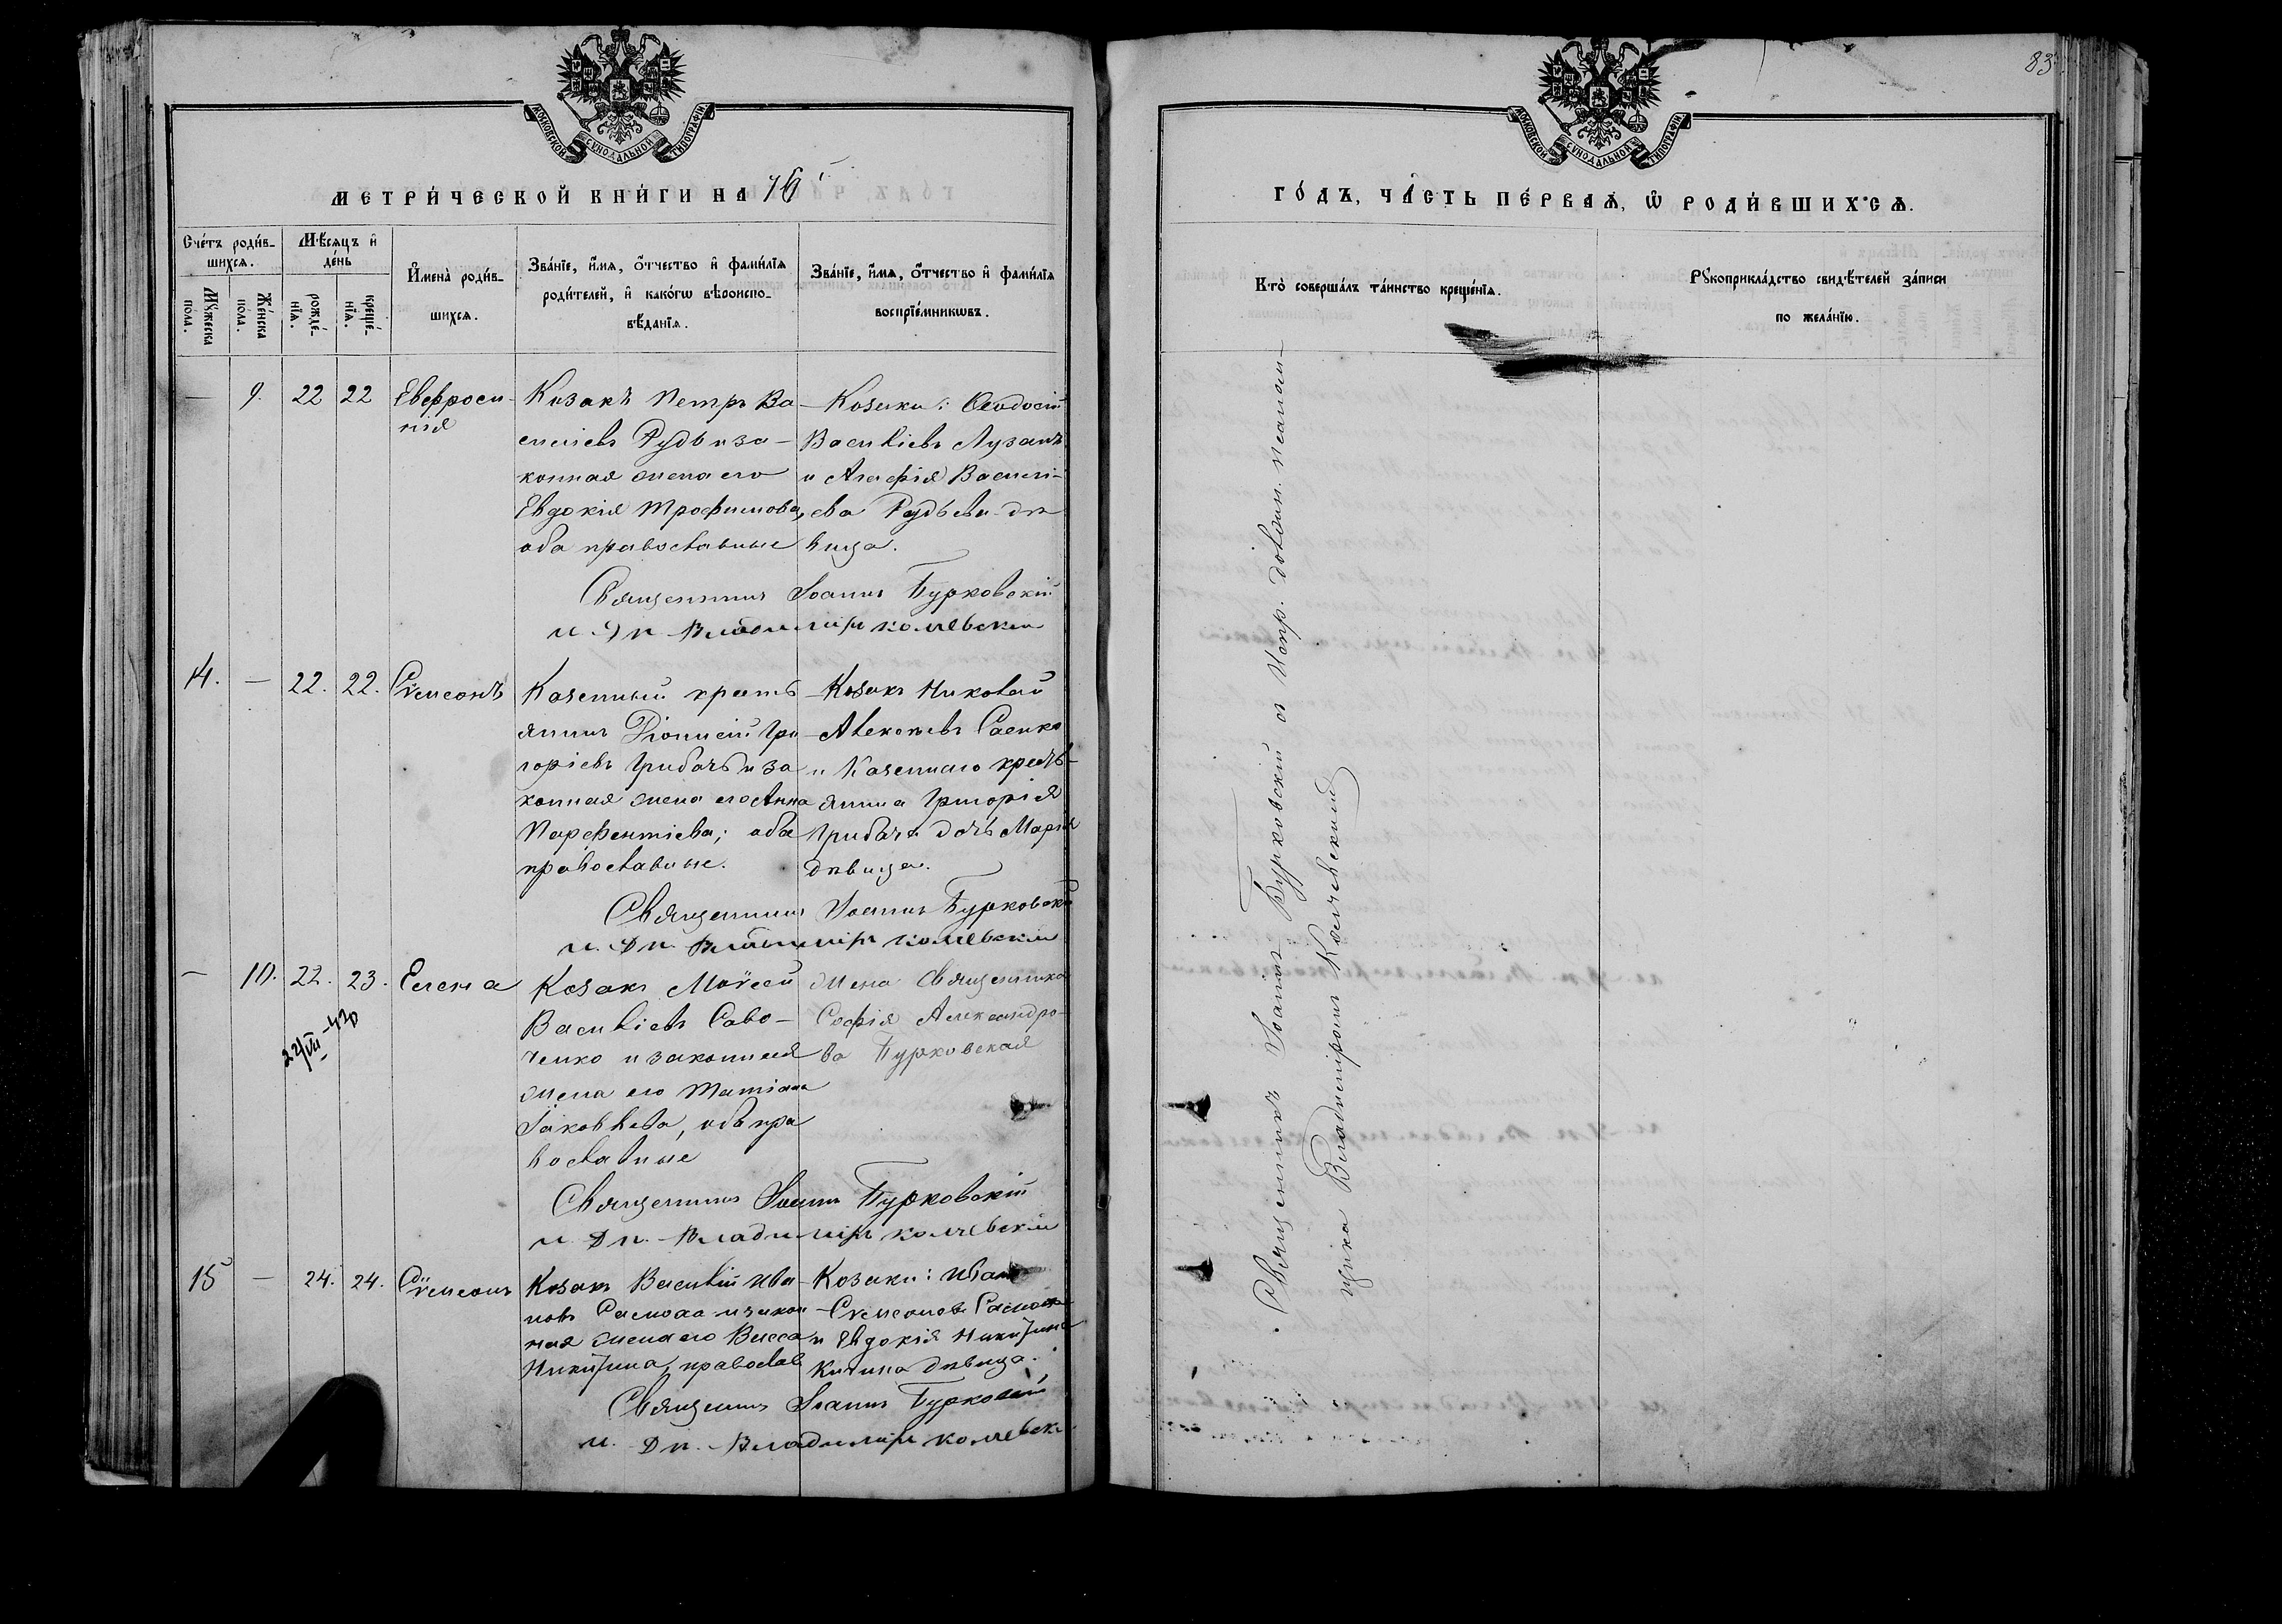 МОСКОВСКОЙ СѴНОДАЛЬНОЙ ТИПОГРАФІИ
МЕТРИ́ЧЕСКОЙ КНИ́ГИ НА 76
Сче́тъ роди́в-
шихся.
Мѣ́сяцъ и҆
де́нь
Мꙋ́жеска
пола.
Же́нска
пола.
рожде́-
нїя.
креще́-
нїя.
И҆мена̀ роди́в-
шихся.
Зва́нїе, и҆́мя, ѻ҆́тчество и҆ фами́лїя
роди́телей, и҆ како́гѡ вѣроиспо-
вѣ́данїя.
Зва́нїе, и҆́мя, ѻ҆́тчество и҆ фами́лїя
воспрїе́мникѡвъ.
— 9. 22 22
Евфроси-
нія
Козакъ Петръ Ва-
силіевъ Рудь и за-
конная жена его
Евдокія Трофимова,
оба православные
Козаки: Ѳеодосій
Василіевъ Лузанъ
и Агафія Василі-
ева Рудьева дѣ
вица.
Священникъ Іоаннъ Бурковскій
и. д. п. Владиміръ Колчевскій
14. — 22. 22.
Сѵмеонъ
Казенный кресть
янинъ Діонисій Гри
горіевъ Грибачъ и за
конная жена его Анна
Парфентіева; оба
православные.
Козакъ Николай
Алексѣевъ Саенко
и Казеннаго кресть-
янина Григорія
Грибача дочь Марія
дѣвица.
Священникъ Іоаннъ Бурковскій
и. д. п. Владиміръ Колчевскій
— 10. 22. 23.
22/VII-42
Елена
Козакъ Моѵсей
Василіевъ Саво-
ченко и законная
жена его Татіана
Іаковлева, оба пра
вославные
Жена Священника
Софія Александро-
ва Бурковская
Священникъ Іоаннъ Бурковскій
и. д. п. Владиміръ Колчевскій
15 — 24. 24.
Сѵмеонъ
Козакъ Василій Ива-
новъ и закон
ная жена его Васса
Никитина, православ
Козаки: Иванъ
Сѵмеоновъ
и Евдокія Никитина
дѣвица.
Священникъ Іоаннъ Бурковскій
и. д. п. Владиміръ Колчевск
83
МОСКОВСКОЙ СѴНОДАЛЬНОЙ ТИПОГРАФІИ
ГО́ДЪ, ЧА́СТЬ ПЕ́РВАЯ, Ѡ҆ РОДИ́ВШИХСЯ.
Кто̀ соверша́лъ та́инство креще́нїя.
Рꙋкоприкла́дство свидѣ́телей за́писи
по жела́нїю.
Священникъ Іоаннъ Бурковскій съ Испр. должн. псалом-
щика Владиміромъ Колчевскимъ